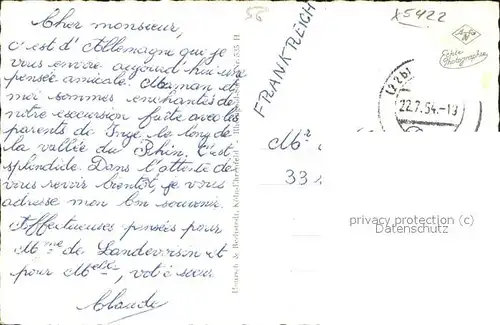 Cher monsieur,
c'est d'Allemagne que je
vous envoie aujourd'hui une
pensée amicale. Maman et
moi sommes enchantés de
notre excursion faite avec les
parents de Inge, le long de
la vallée du Rhin. C'est
splendide. Dans l'attente de
vous revoir bientôt, je vous
adresse mon bon souvenir.
Affectueuses pensées pour
Mme de Landevoisin et
pour votre
Claude
56
FRANKREICH
X5422
Echte
Photographie
(22b)
22.7.54.-19
M
33
privacy protection (c)
Datenschutz
Nr. 555 H